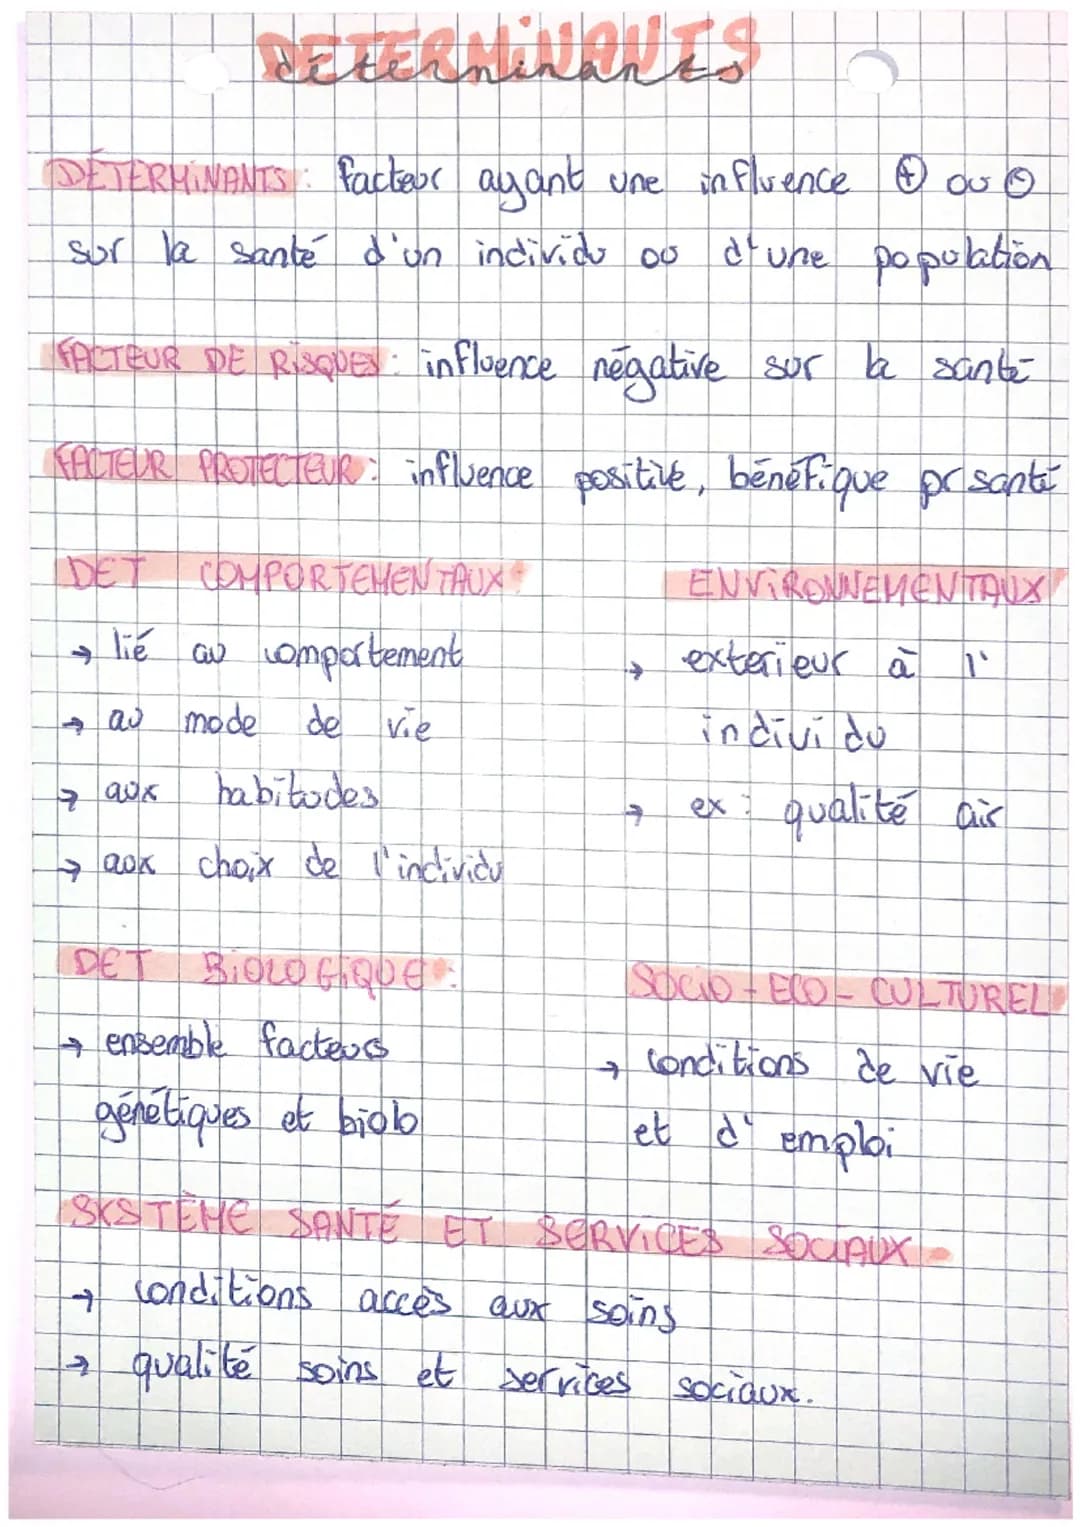 DETERMINANTS
déterminants
DÉTERMINANTS : facteur ayant une influence ⊕ ou ⊖
sur la santé d'un individu ou d'une population
FACTEUR DE RISQUES : influence négative sur la santé
FACTEUR PROTECTEUR : influence positive, bénéfique pr santé
DET COMPORTEMENTAUX
→ lié au comportement
→ au mode de vie
→ aux habitudes
→ aux choix de l'individu
ENVIRONNEMENTAUX
→ exterieur à l'
individu
→ ex : qualité air
DET BIOLOGIQUE :
→ ensemble facteurs
génétiques et biolo
SOCIO - ECO - CULTUREL
→ conditions de vie
et d'emploi
SYSTÈME SANTÉ ET SERVICES SOCIAUX
→ conditions accès aux soins
→ qualité soins et services sociaux.